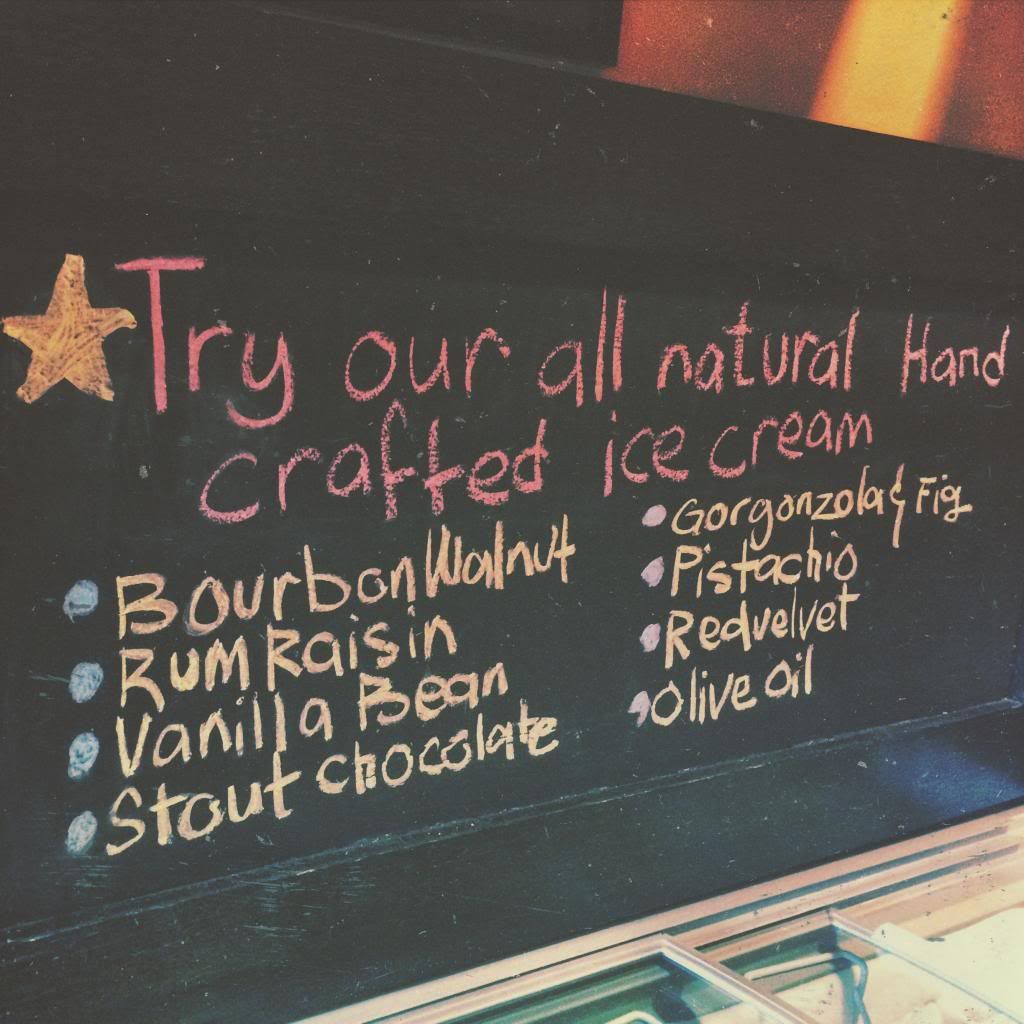 Try our all natural Hand
crafted ice cream
Bourbon Walnut
Rum Raisin
Vanilla Bean
Stout chocolate
Gorgonzola & Fig
Pistachio
Redvelvet
Olive oil